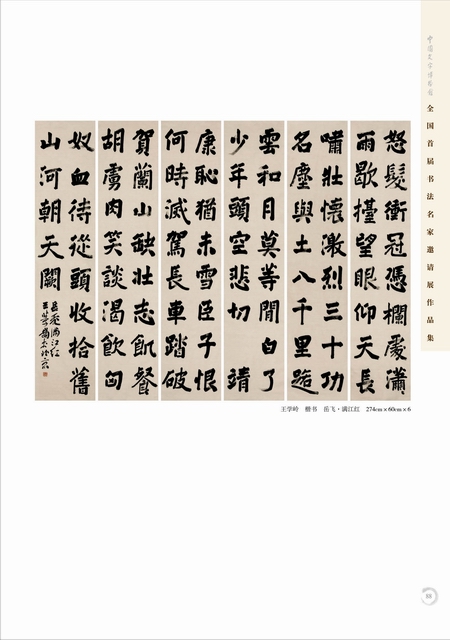 中国文字博物馆
全国首届书法名家邀请展作品集
怒髮衝冠憑欄處瀟
雨歇擡望眼仰天長
嘯壯懷激烈三十功
名塵與土八千里路
雲和月莫等閒白了
少年頭空悲切靖
康恥猶未雪臣子恨
何時滅駕長車踏破
賀蘭山缺壯志飢餐
胡虜肉笑談渴飲匈
奴血待從頭收拾舊
山河朝天闕
岳飛滿江紅
王學嶺書於
王学岭 楷书 岳飞·满江红 274cm×60cm×6
88